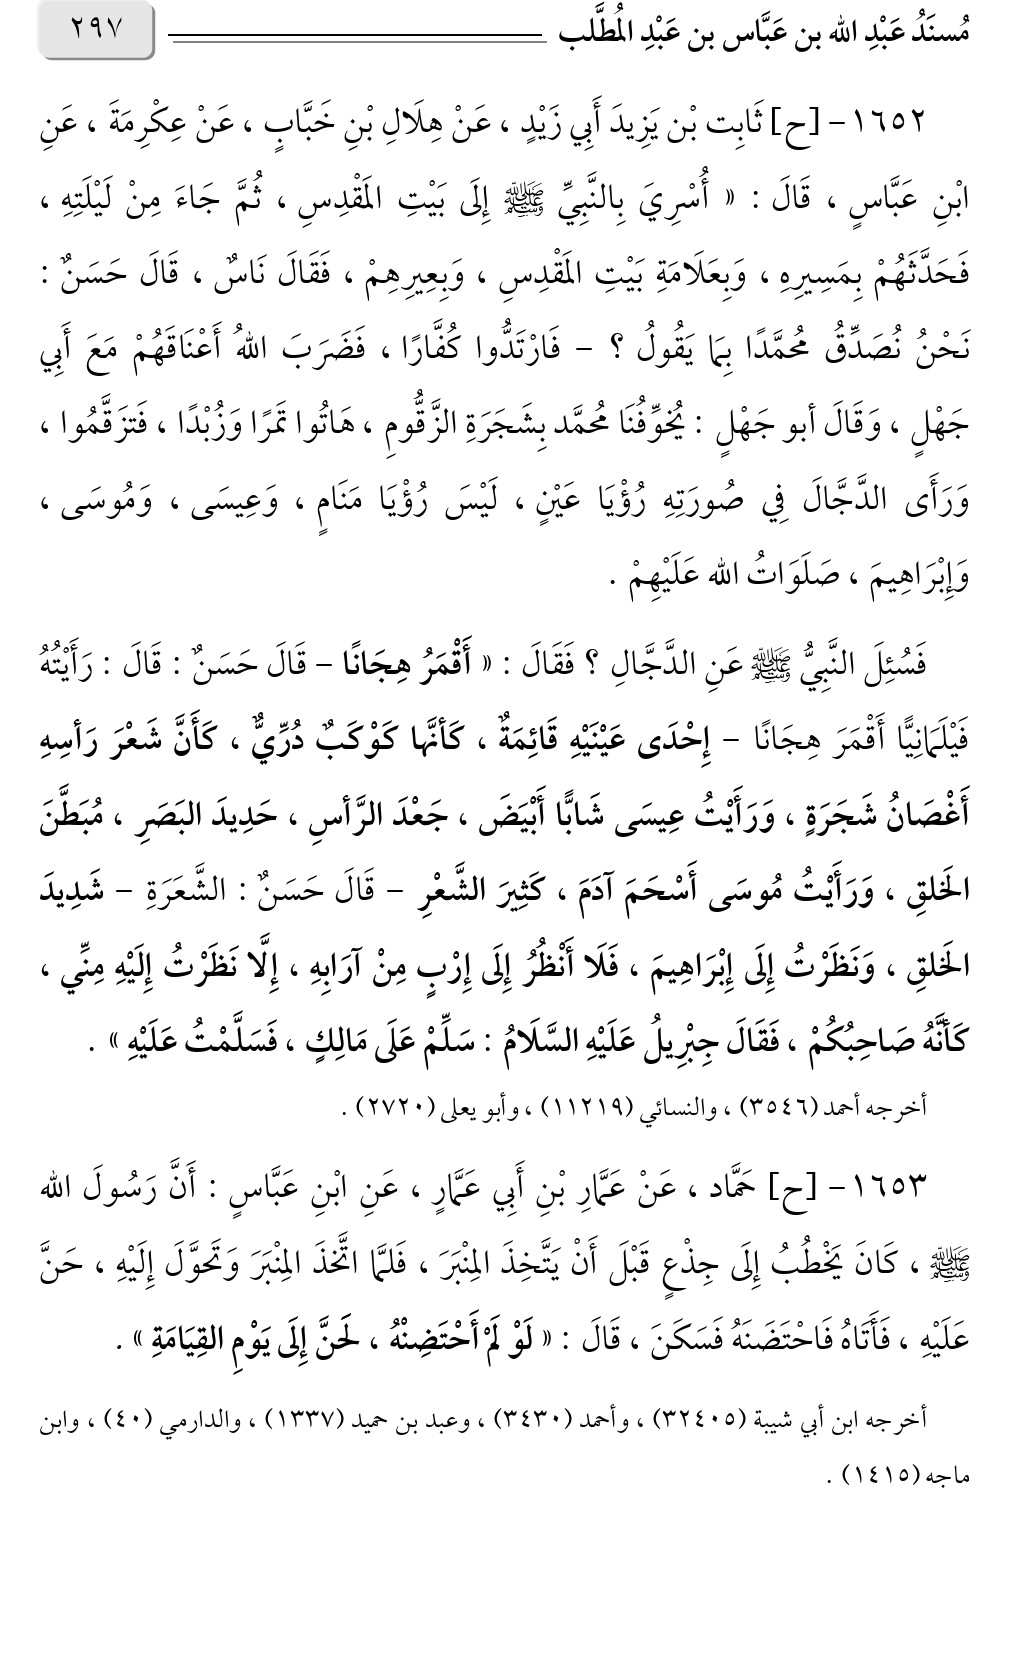 مُسنَدُ عَبْدِ الله بن عَبَّاس بن عَبْدِ المُطَّلب ٢٩٧
١٦٥٢- [ح] ثَابِت بْن يَزِيدَ أَبِي زَيْدٍ ، عَنْ هِلَالِ بْنِ خَبَّابٍ ، عَنْ عِكْرِمَةَ ، عَنِ
ابْنِ عَبَّاسٍ ، قَالَ : « أُسْرِيَ بِالنَّبِيِّ ﷺ إِلَى بَيْتِ المَقْدِسِ ، ثُمَّ جَاءَ مِنْ لَيْلَتِهِ ،
فَحَدَّثَهُمْ بِمَسِيرِهِ ، وَبِعَلَامَةِ بَيْتِ المَقْدِسِ ، وَبِعِيرِهِمْ ، فَقَالَ نَاسٌ ، قَالَ حَسَنٌ :
نَحْنُ نُصَدِّقُ مُحَمَّدًا بِمَا يَقُولُ ؟ – فَارْتَدُّوا كُفَّارًا ، فَضَرَبَ اللهُ أَعْنَاقَهُمْ مَعَ أَبِي
جَهْلٍ ، وَقَالَ أبو جَهْلٍ : يُخَوِّفُنَا مُحَمَّد بِشَجَرَةِ الزَّقُّومِ ، هَاتُوا تَمرًا وَزُبْدًا ، فَتزَقَّمُوا ،
وَرَأَى الدَّجَّالَ فِي صُورَتِهِ رُؤْيَا عَيْنٍ ، لَيْسَ رُؤْيَا مَنَامٍ ، وَعِيسَى ، وَمُوسَى ،
وَإِبْرَاهِيمَ ، صَلَوَاتُ الله عَلَيْهِمْ .
فَسُئِلَ النَّبِيُّ ﷺ عَنِ الدَّجَّالِ ؟ فَقَالَ : « أَقْمَرُ هِجَانًا – قَالَ حَسَنٌ : قَالَ : رَأَيْتُهُ
فَيْلَمَانِيًّا أَقْمَرَ هِجَانًا – إِحْدَى عَيْنَيْهِ قَائِمَةٌ ، كَأنَّها كَوْكَبٌ دُرِّيٌّ ، كَأَنَّ شَعْرَ رَأسِهِ
أَغْصَانُ شَجَرَةٍ ، وَرَأَيْتُ عِيسَى شَابًّا أَبْيَضَ ، جَعْدَ الرَّأسِ ، حَدِيدَ البَصَرِ ، مُبَطَّنَ
الخَلقِ ، وَرَأَيْتُ مُوسَى أَسْحَمَ آدَمَ ، كَثِيرَ الشَّعْرِ – قَالَ حَسَنٌ : الشَّعَرَةِ – شَدِيدَ
الخَلقِ ، وَنَظَرْتُ إِلَى إِبْرَاهِيمَ ، فَلَا أَنْظُرُ إِلَى إِرْبٍ مِنْ آرَابِهِ ، إِلَّا نَظَرْتُ إِلَيْهِ مِنِّي ،
كَأَنَّهُ صَاحِبُكُمْ ، فَقَالَ جِبْرِيلُ عَلَيْهِ السَّلَامُ : سَلِّمْ عَلَى مَالِكٍ ، فَسَلَّمْتُ عَلَيْهِ » .
أخرجه أحمد (٣٥٤٦) ، والنسائي (١١٢١٩) ، وأبو يعلى (٢٧٢٠) .
١٦٥٣- [ح] حَمَّاد ، عَنْ عَمَّارِ بْنِ أَبِي عَمَّارٍ ، عَنِ ابْنِ عَبَّاسٍ : أَنَّ رَسُولَ الله
ﷺ ، كَانَ يَخْطُبُ إِلَى جِذْعٍ قَبْلَ أَنْ يَتَّخِذَ المِنْبَرَ ، فَلمَّا اتَّخذَ المِنْبَرَ وَتَحَوَّلَ إِلَيْهِ ، حَنَّ
عَلَيْهِ ، فَأَتَاهُ فَاحْتَضَنَهُ فَسَكَنَ ، قَالَ : « لَوْ لَمْ أَحْتَضِنْهُ ، لَحَنَّ إِلَى يَوْمِ القِيَامَةِ » .
أخرجه ابن أبي شيبة (٣٢٤٠٥) ، وأحمد (٣٤٣٠) ، وعبد بن حميد (١٣٣٧) ، والدارمي (٤٠) ، وابن
ماجه (١٤١٥) .